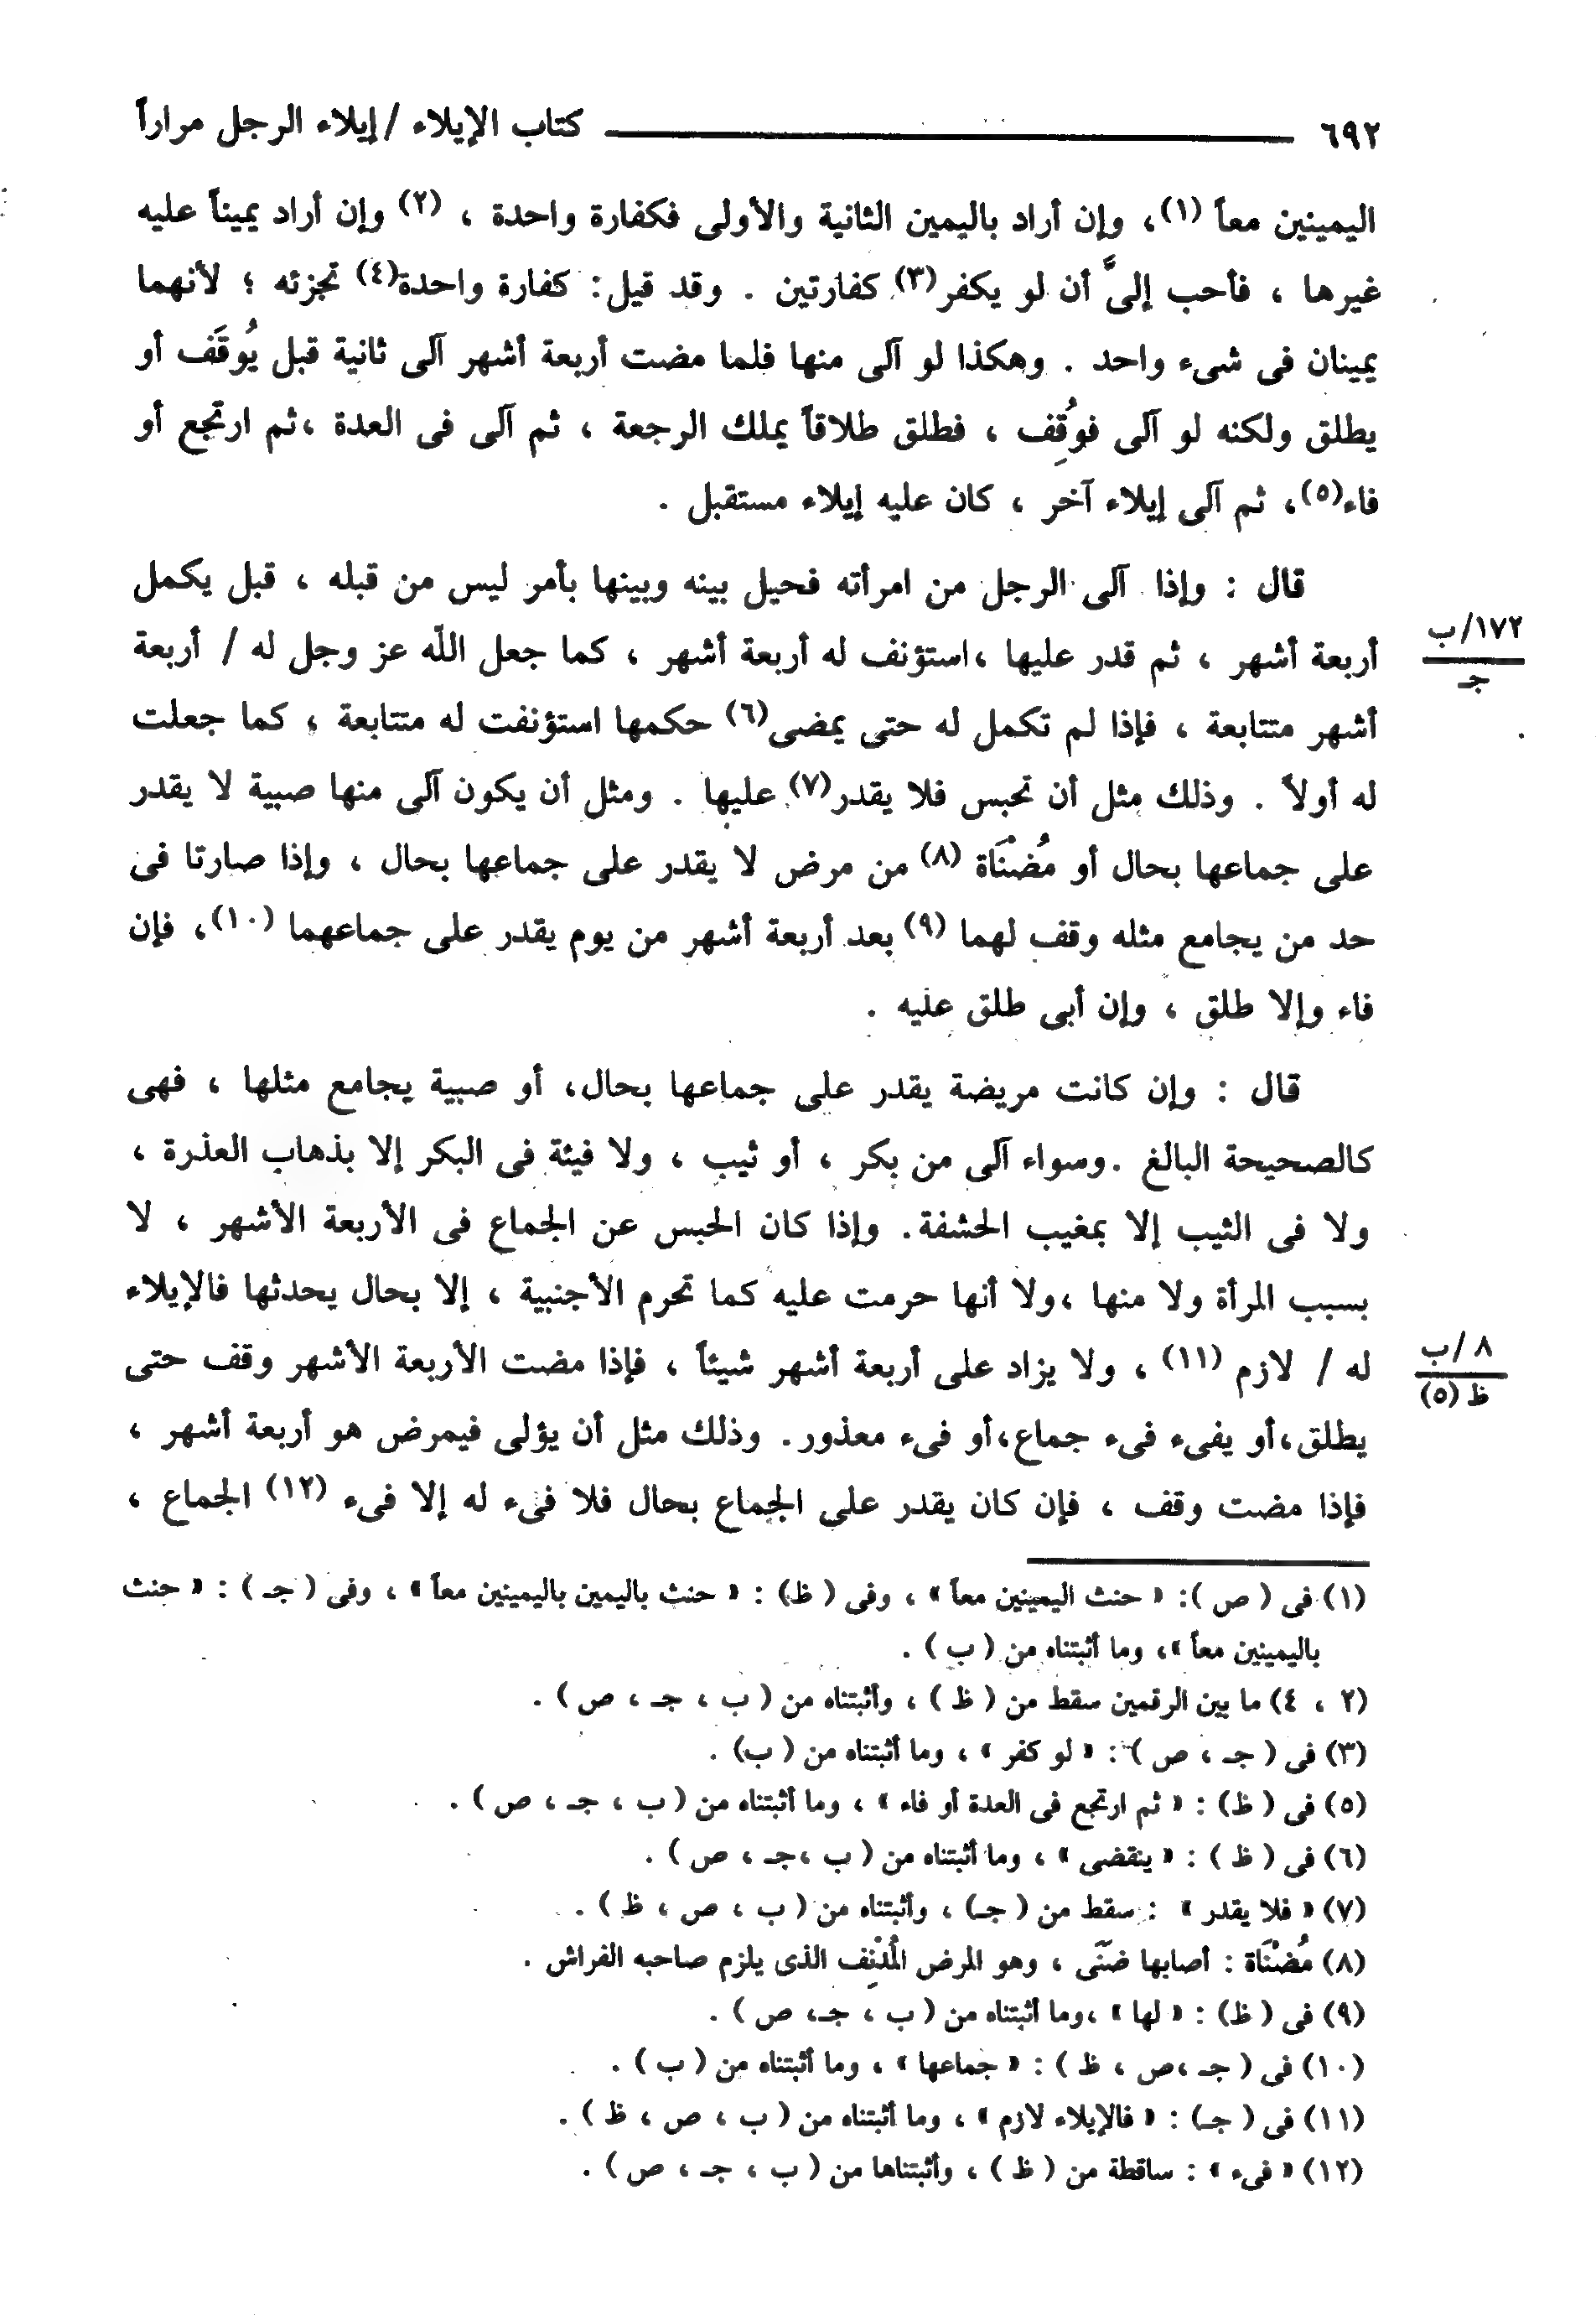 ٦٩٢ كتاب الإيلاء / إيلاء الرجل مراراً
اليمينين معاً (١)، وإن أراد باليمين الثانية والأولى فكفارة واحدة ، (٢) وإن أراد يميناً عليه
غيرها ، فأحب إلىَّ أن لو يكفر(٣) كفارتين . وقد قيل: كفارة واحدة(٤) تجزئه ؛ لأنهما
يمينان فى شىء واحد . وهكذا لو آلى منها فلما مضت أربعة أشهر آلى ثانية قبل يُوقَف أو
يطلق ولكنه لو آلى فوُقِف ، فطلق طلاقاً يملك الرجعة ، ثم آلى فى العدة ،ثم ارتجع أو
فاء(٥)، ثم آلى إيلاء آخر ، كان عليه إيلاء مستقبل .
قال : وإذا آلى الرجل من امرأته فحيل بينه وبينها بأمر ليس من قبله ، قبل يكمل
أربعة أشهر ، ثم قدر عليها ،استؤنف له أربعة أشهر ، كما جعل اللّه عز وجل له / أربعة
١٧٢/ب
جـ
أشهر متتابعة ، فإذا لم تكمل له حتى يمضى(٦) حكمها استؤنفت له متتابعة ، كما جعلت
له أولاً . وذلك مثل أن تحبس فلا يقدر(٧) عليها . ومثل أن يكون آلى منها صبية لا يقدر
على جماعها بحال أو مُضْنَاة (٨) من مرض لا يقدر على جماعها بحال ، وإذا صارتا فى
حد من يجامع مثله وقف لهما (٩) بعد أربعة أشهر من يوم يقدر على جماعهما (١٠)، فإن
فاء وإلا طلق ، وإن أبى طلق عليه .
قال : وإن كانت مريضة يقدر على جماعها بحال، أو صبية يجامع مثلها ، فهى
كالصحيحة البالغ .وسواء آلى من بكر ، أو ثيب ، ولا فيئة فى البكر إلا بذهاب العذرة ،
ولا فى الثيب إلا بمغيب الحشفة. وإذا كان الحبس عن الجماع فى الأربعة الأشهر ، لا
بسبب المرأة ولا منها ،ولا أنها حرمت عليه كما تحرم الأجنبية ، إلا بحال يحدثها فالإيلاء
له / لازم (١١) ، ولا يزاد على أربعة أشهر شيئاً ، فإذا مضت الأربعة الأشهر وقف حتى
٨ /ب
ظ (٥)
يطلق،أو يفىء فىء جماع،أو فىء معذور. وذلك مثل أن يؤلى فيمرض هو أربعة أشهر ،
فإذا مضت وقف ، فإن كان يقدر على الجماع بحال فلا فىء له إلا فىء (١٢) الجماع ،
(١) فى ( ص ): « حنث اليمينين معاً » ، وفى ( ظ) : « حنث باليمين باليمينين معاً » ، وفى ( جـ ) : « حنث
باليمينين معاً »، وما أثبتناه من ( ب ) .
(٢ ، ٤) ما بين الرقمين سقط من ( ظ ) ، وأثبتناه من ( ب ، جـ ، ص ) .
(٣) فى ( جـ ، ص ) : « لو كفر » ، وما أثبتناه من ( ب) .
(٥) فى ( ظ) : « ثم ارتجع فى العدة أو فاء » ، وما أثبتناه من ( ب ، جـ ، ص ) .
(٦) فى ( ظ ) : « ينقضى » ، وما أثبتناه من ( ب ،جـ ، ص ) .
(٧) « فلا يقدر » : سقط من ( جـ) ، وأثبتناه من ( ب ، ص ، ظ ) .
(٨) مُضْنَاة : أصابها ضَنَى ، وهو المرض المُدْنِف الذى يلزم صاحبه الفراش .
(٩) فى ( ظ) : « لها » ،وما أثبتناه من ( ب ، جـ، ص ) .
(١٠) فى ( جـ ،ص ، ظ ) : « جماعها » ، وما أثبتناه من ( ب ) .
(١١) فى ( جـ) : « فالإيلاء لازم » ، وما أثبتناه من ( ب ، ص ، ظ ) .
(١٢) « فىء » : ساقطة من ( ظ ) ، وأثبتناها من ( ب ، جـ ، ص ) .